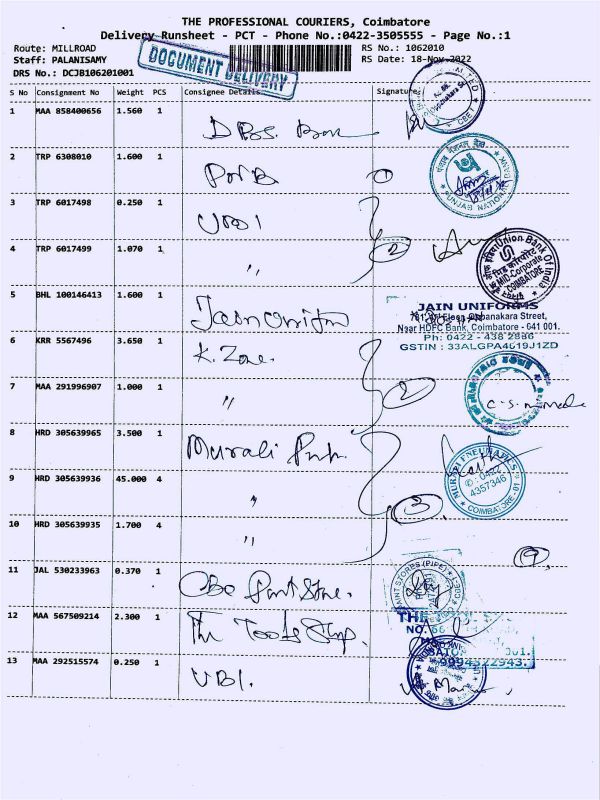 THE PROFESSIONAL COURIERS, Coimbatore
Delivery Runsheet - PCT - Phone No.:0422-3505555 - Page No.:1
Route: MILLROAD
RS No.: 1062010
Staff: PALANISAMY
RS Date: 18-Nov-2022
DRS No.: DCJB106201001
DOCUMENT DELIVERY
S No Consignment No Weight PCS Consignee Details Signature
1 MAA 858400656 1.560 1
2 TRP 6308010 1.600 1 PNB 1
PUNJAB NATIONAL BANK
3 TRP 6017498 0.250 1 UBI
4 TRP 6017499 1.070 1 " 2
Union Bank Of India
MID-Corporate
COIMBATORE
5 BHL 100146413 1.600 1 Jain Uniform
JAIN UNIFORMS
Oppanakara Street,
Near HDFC Bank, Coimbatore - 641 001.
Ph: 0422 - 438 2886
GSTIN : 33ALGPA4619J1ZD
6 KRR 5567496 3.650 1 K. Zone.
7 MAA 291996907 1.000 1 " 2
8 HRD 305639965 3.500 1 Murali
9 HRD 305639936 45.000 4 " 3
MURALI PNEUMATICS
0422
4357346
COIMBATORE-01
10 HRD 305639935 1.700 4 "
9
11 JAL 530233963 0.370 1 Cbe Paint Store.
PAINT STORES (PIPE)
12 MAA 567509214 2.300 1 The Tools Shop.
THE
NO. 66
9994322943.
13 MAA 292515574 0.250 1 UBI.